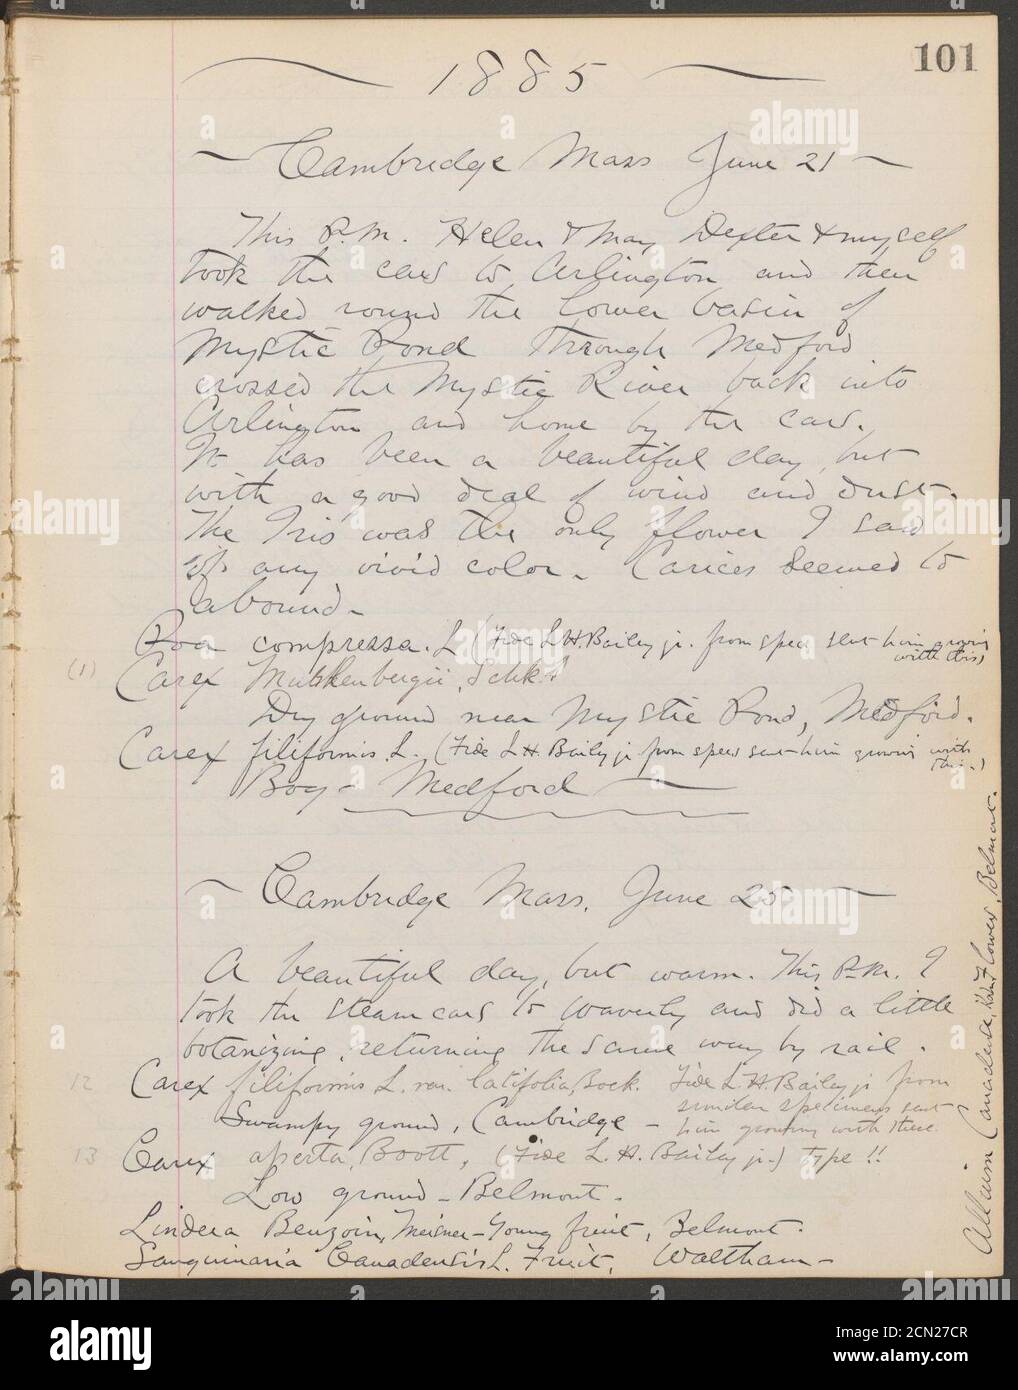 101
1885
Cambridge Mass June 21
This P.M. Helen & May Dexter & myself
took the cars to Arlington and then
walked round the lower basin of
Mystic Pond through Medford
crossed the Mystic River back into
Arlington and home by the cars.
It has been a beautiful day, but
with a good deal of wind and dust.
The Iris was the only flower I saw
of any vivid color. Carices seemed to
abound.
Poa compressa. L (Fide L H. Bailey jr. from spec sent him growing
with this)
(1) Carex Muhlenbergii, Schk.
Dry ground near Mystic Pond, Medford.
Carex filiformis, L. (Fide L H. Bailey jr from spec sent him growing with
this.)
Bog - Medford
Cambridge Mass. June 25
A beautiful day, but warm. This P.M. I
took the steam cars to Waverly and did a little
botanizing, returning the same way by rail.
12 Carex filiformis L. var. latifolia, Boeck. Fide L H. Bailey jr from
Swampy ground, Cambridge - similar specimens sent
him growing with these.
13 Carex aperta, Boott, (Fide L. H. Bailey jr.) type!!
Low ground - Belmont.
Lindera Benzoin, Meisner - Young fruit, Belmont.
Sanguinaria Canadensis L. Fruit, Waltham -
Allium Canadense, Kalm Flower, Belmont.
alamy
Image ID: 2CN27CR
www.alamy.com